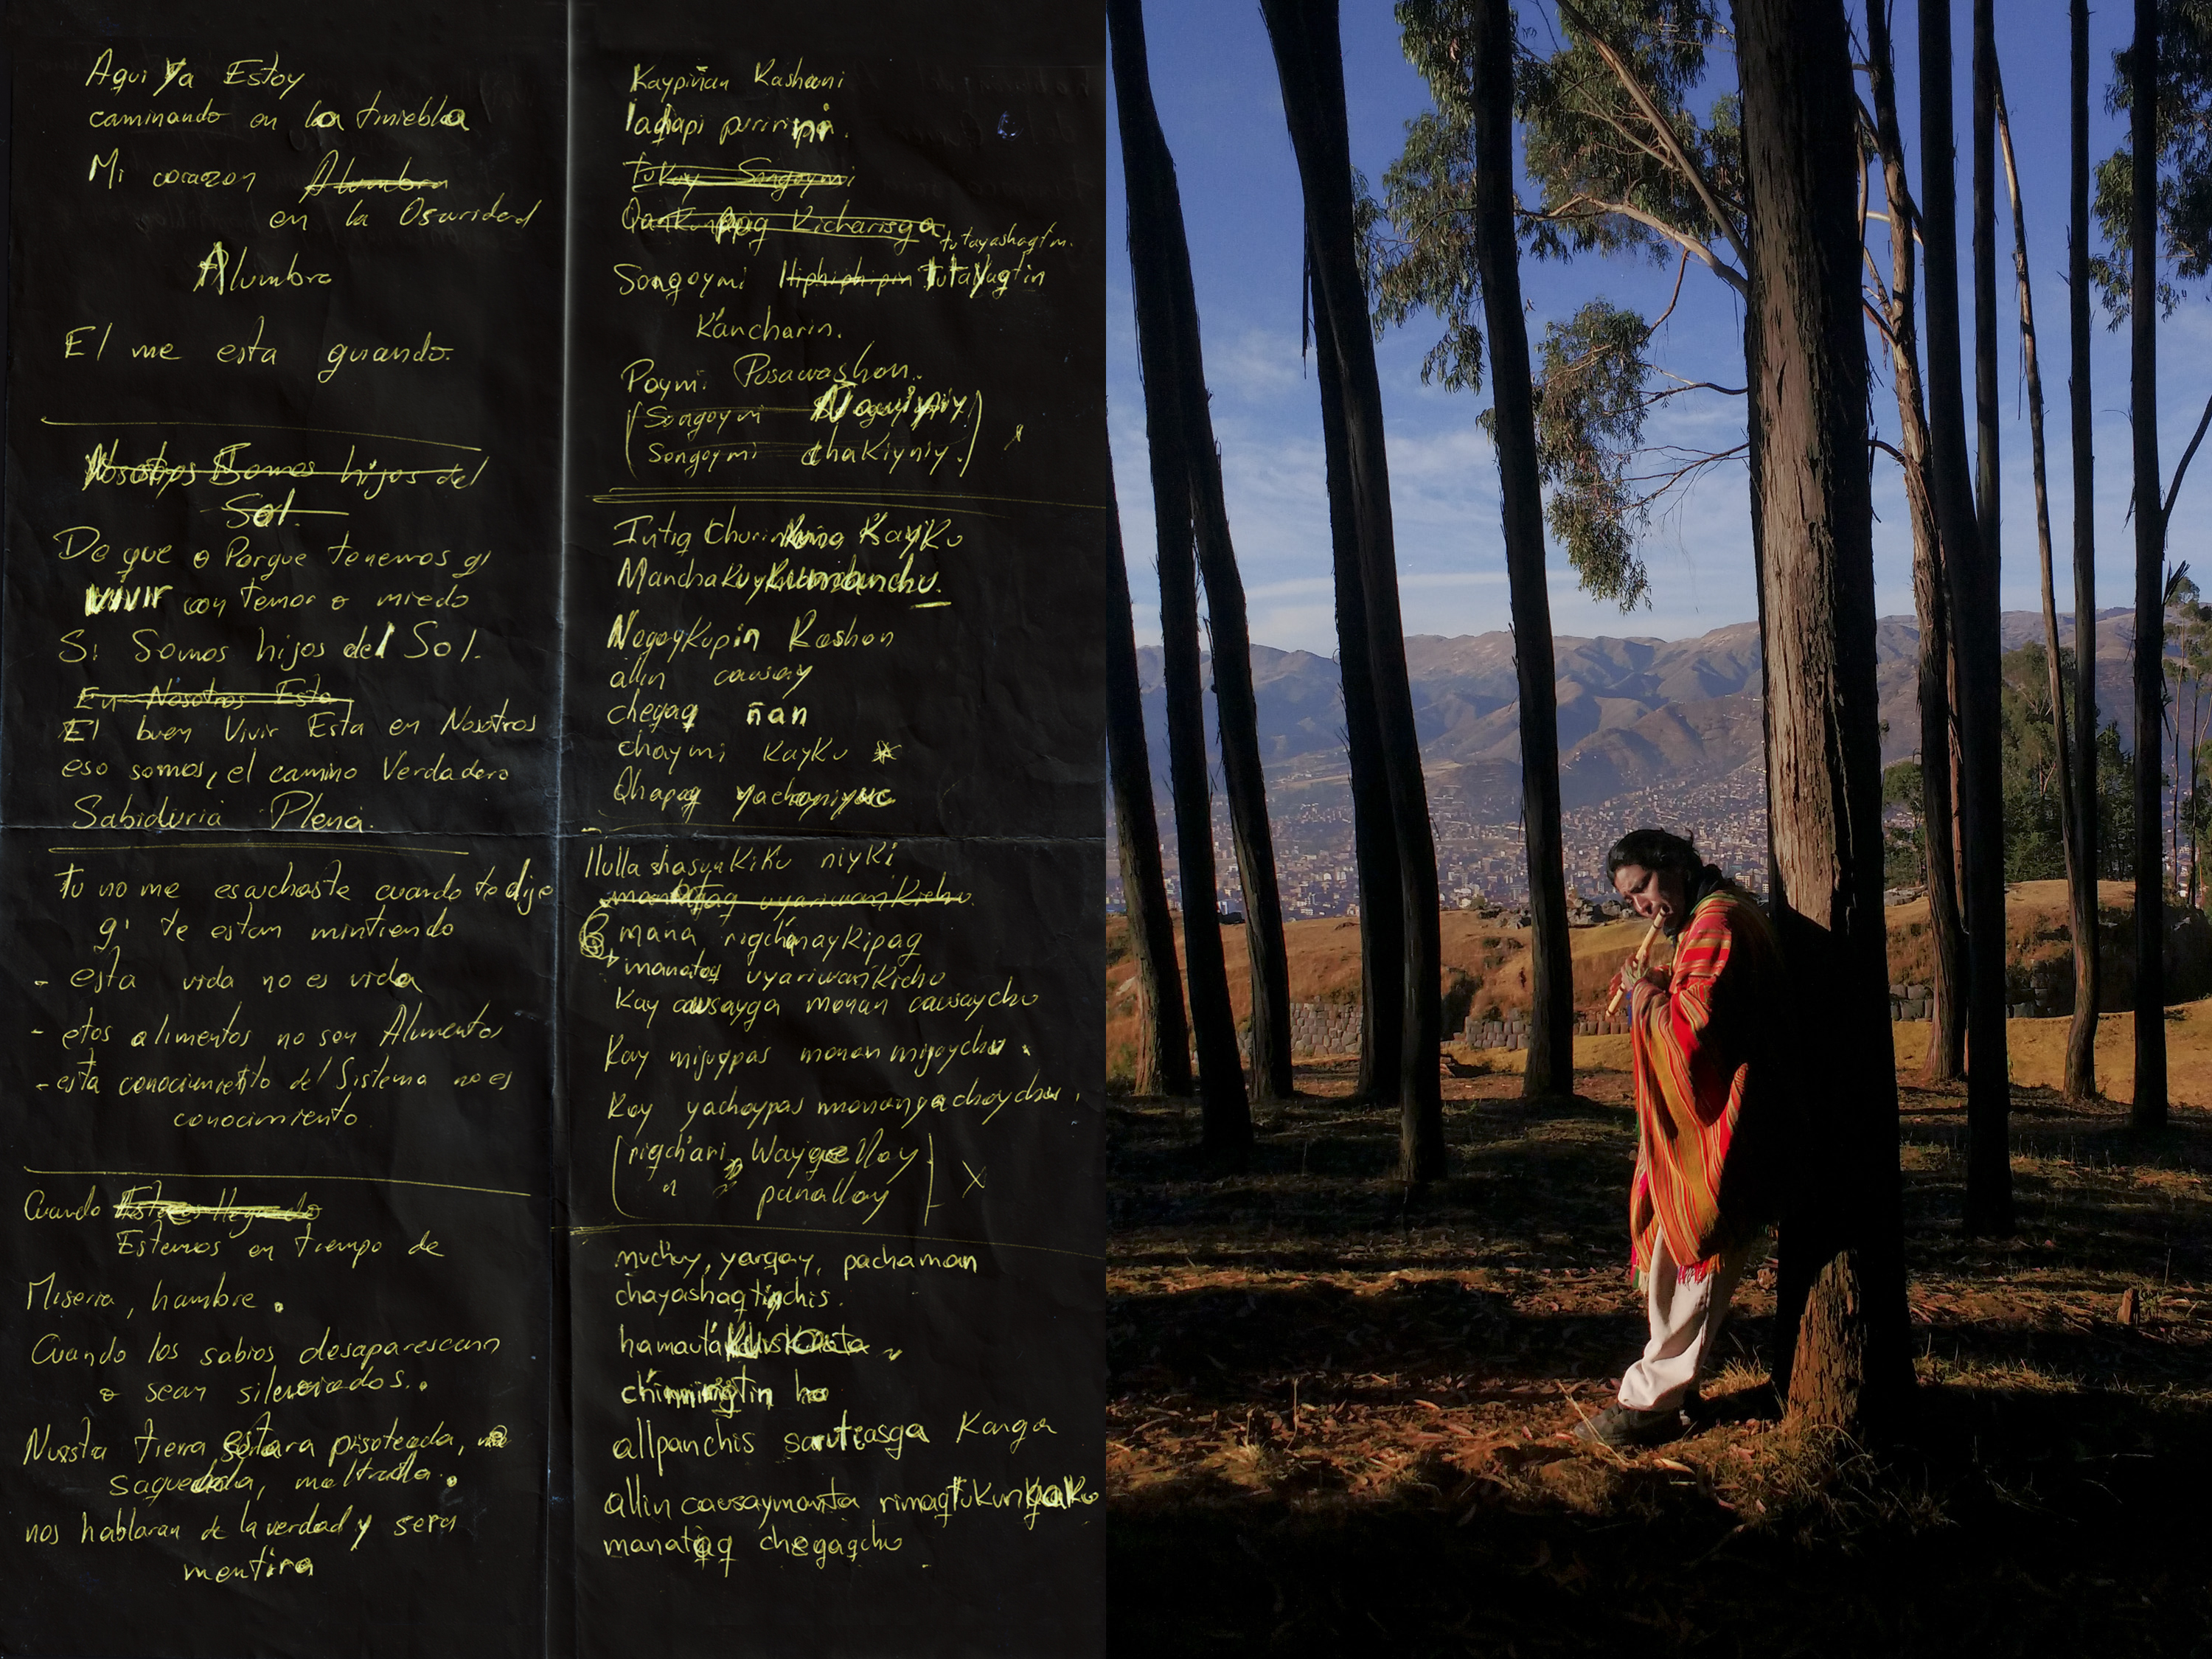 Aqui Ya Estoy
caminando en la tiniebla
Mi corazon Alumbra
en la Oscuridad
Alumbra
El me esta guiando.
Nosotros Somos hijos del
Sol.
De que o Porque tenemos q'
vivir con temor o miedo
Si Somos hijos del Sol.
En Nosotros Esta
El buen Vivir Esta en Nosotros
eso somos, el camino Verdadero
Sabiduria Plena.
tu no me escuchaste cuando te dije
q' te estan mintiendo
- esta vida no es vida
- etos alimentos no son Alimentos
- esta conocimiento del Sistema no es
conocimiento.
Cuando
Estemos en tiempo de
Miseria, hambre.
Cuando los sabios desaparescan
o sean silenciados..
Nuestra tierra estara pisoteada,
saqueada, maltrada.
nos hablaran de la verdad y sera
mentira
Kaypiñan Kashani
laqhapi puririni.
tukuy Sonqoymi
Kicharisqa
tutayashaqtin.
Sonqoymi Hiphiphipin tutayaqtin
K'ancharin.
Paymi Pusawashan.
(Sonqoymi Ñaquiypiy)
Sonqoymi chakiyniy.)
Intiq Churinkuna Kayku
Manchakuykumanchu.
Noqaykupin Kashan
allin causay
cheqaq ñan
chaymi kayku
Qhapaq yachayniyuc
llullashasunkiku niyki
manataq uyariwankichu.
mana rigch'anaykipaq
manataq uyariwankichu
Kay causayqa manan causaychu
Kay mijuypas manan mijuychu.
Kay yachaypas mananyachaychu.
(rigch'ari Wayqellay
" " panallay)
muchuy, yarqay, pachaman
chayashaqtinchis.
hamauta
chinkaqtin
allpanchis sarutiasqa Kanqa
allin causaymanta rimaqtukunqaku
manataq cheqaqchu